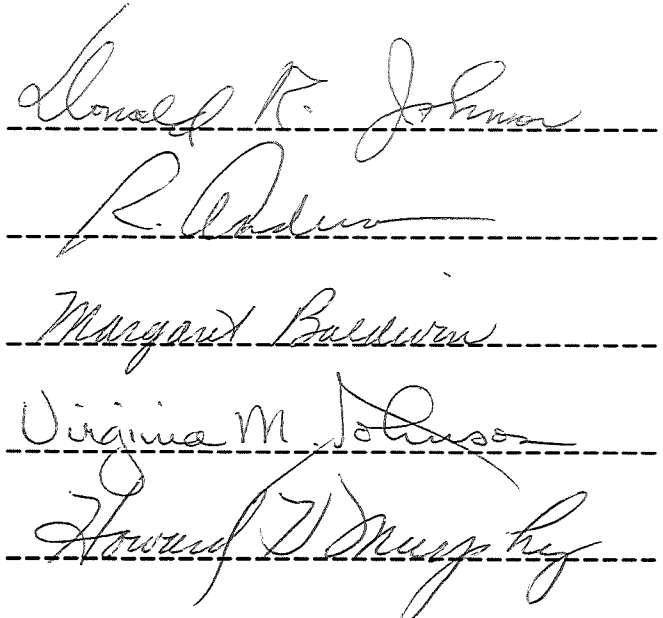 Donald R. Johnson
R. Anderson
Margaret Baldwin
Virginia M. Johnson
Howard H Murphy